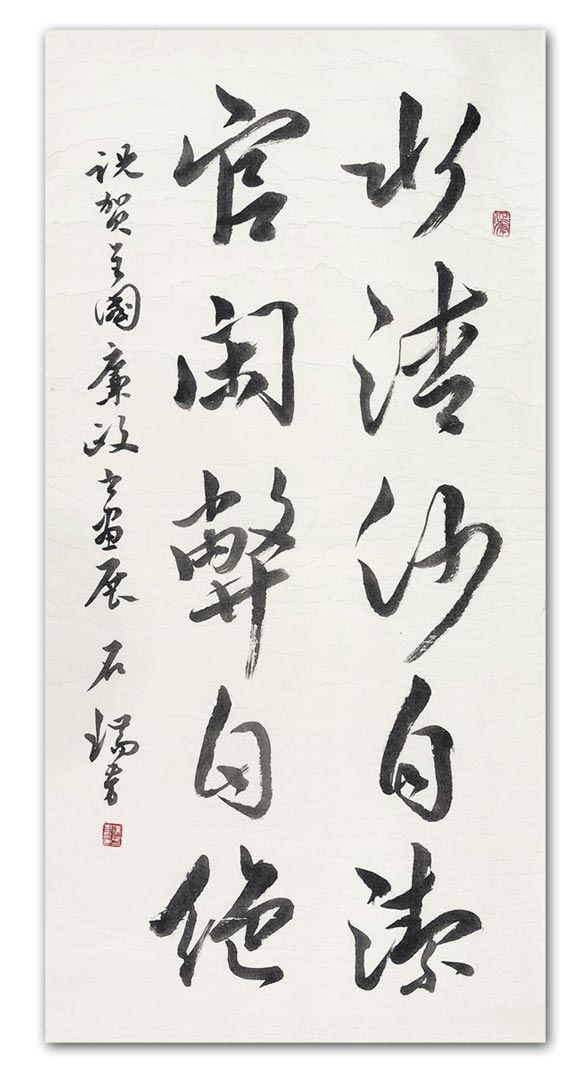 水清沙自潔
官闲弊自绝
祝贺全國廉政书画展 石瑞芳